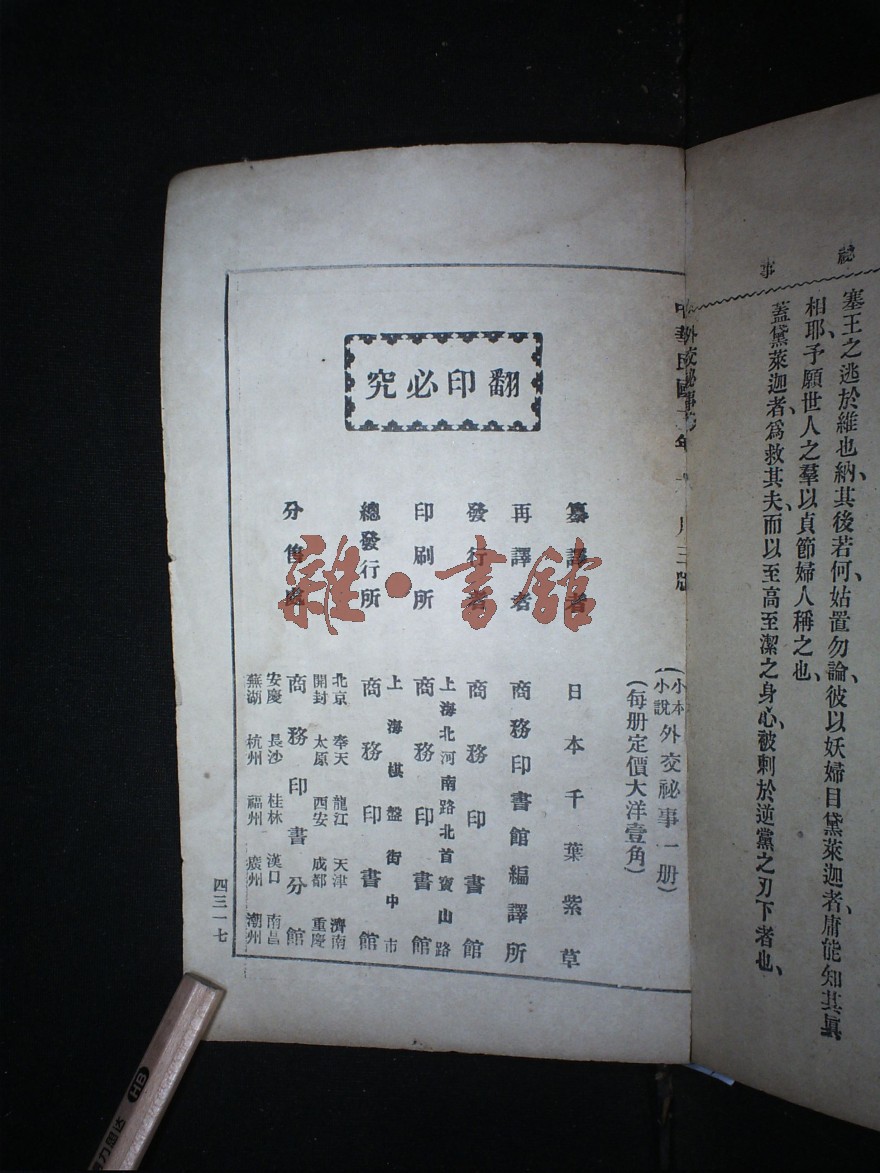 祕
事
塞王之逃於維也納、其後若何、姑置勿論、彼以妖婦目黛萊迦者、庸能知其眞
相耶、予願世人之羣以貞節婦人稱之也、
蓋黛萊迦者、爲救其夫、而以至高至潔之身心、被刺於逆黨之刃下者也、
外交祕事
中華民國二年 月三版
(小本小說 外交祕事一册)
(每册定價大洋壹角)
翻印必究
纂譯者 日本千葉紫草
再譯者 商務印書館編譯所
發行者 商務印書館
上海北河南路北首寶山路
印刷所 商務印書館
上海棋盤街中市
總發行所 商務印書館
北京 奉天 龍江 天津 濟南
開封 太原 西安 成都 重慶
分售處 商務印書分館
安慶 長沙 桂林 漢口 南昌
蕪湖 杭州 福州 廣州 潮州
四三一七
雜·書館
HB